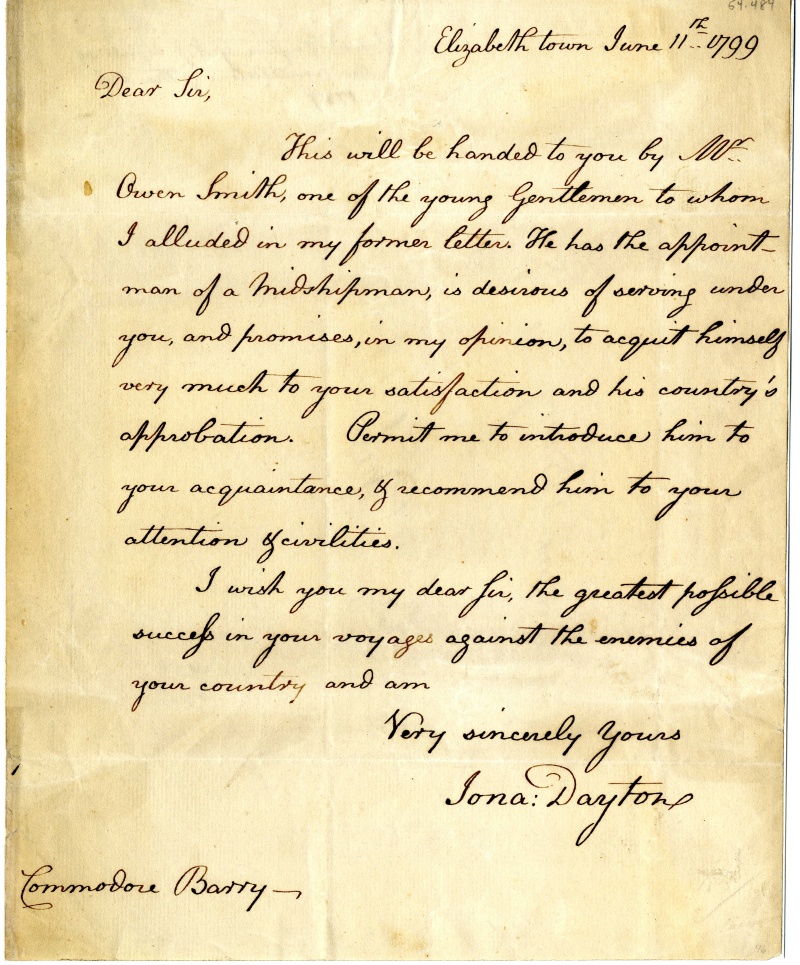 64.484
Elizabeth town June 11th 1799
Dear Sir,
This will be handed to you by Mr
Owen Smith, one of the young Gentlemen to whom
I alluded in my former letter. He has the appoint-
man of a Midshipman, is desirous of serving under
you, and promises, in my opinion, to acquit himself
very much to your satisfaction and his country's
approbation. Permit me to introduce him to
your acquaintance, & recommend him to your
attention & civilities.
I wish you my dear Sir, the greatest possible
success in your voyages against the enemies of
your country and am
Very sincerely Yours
Jona: Dayton
Commodore Barry